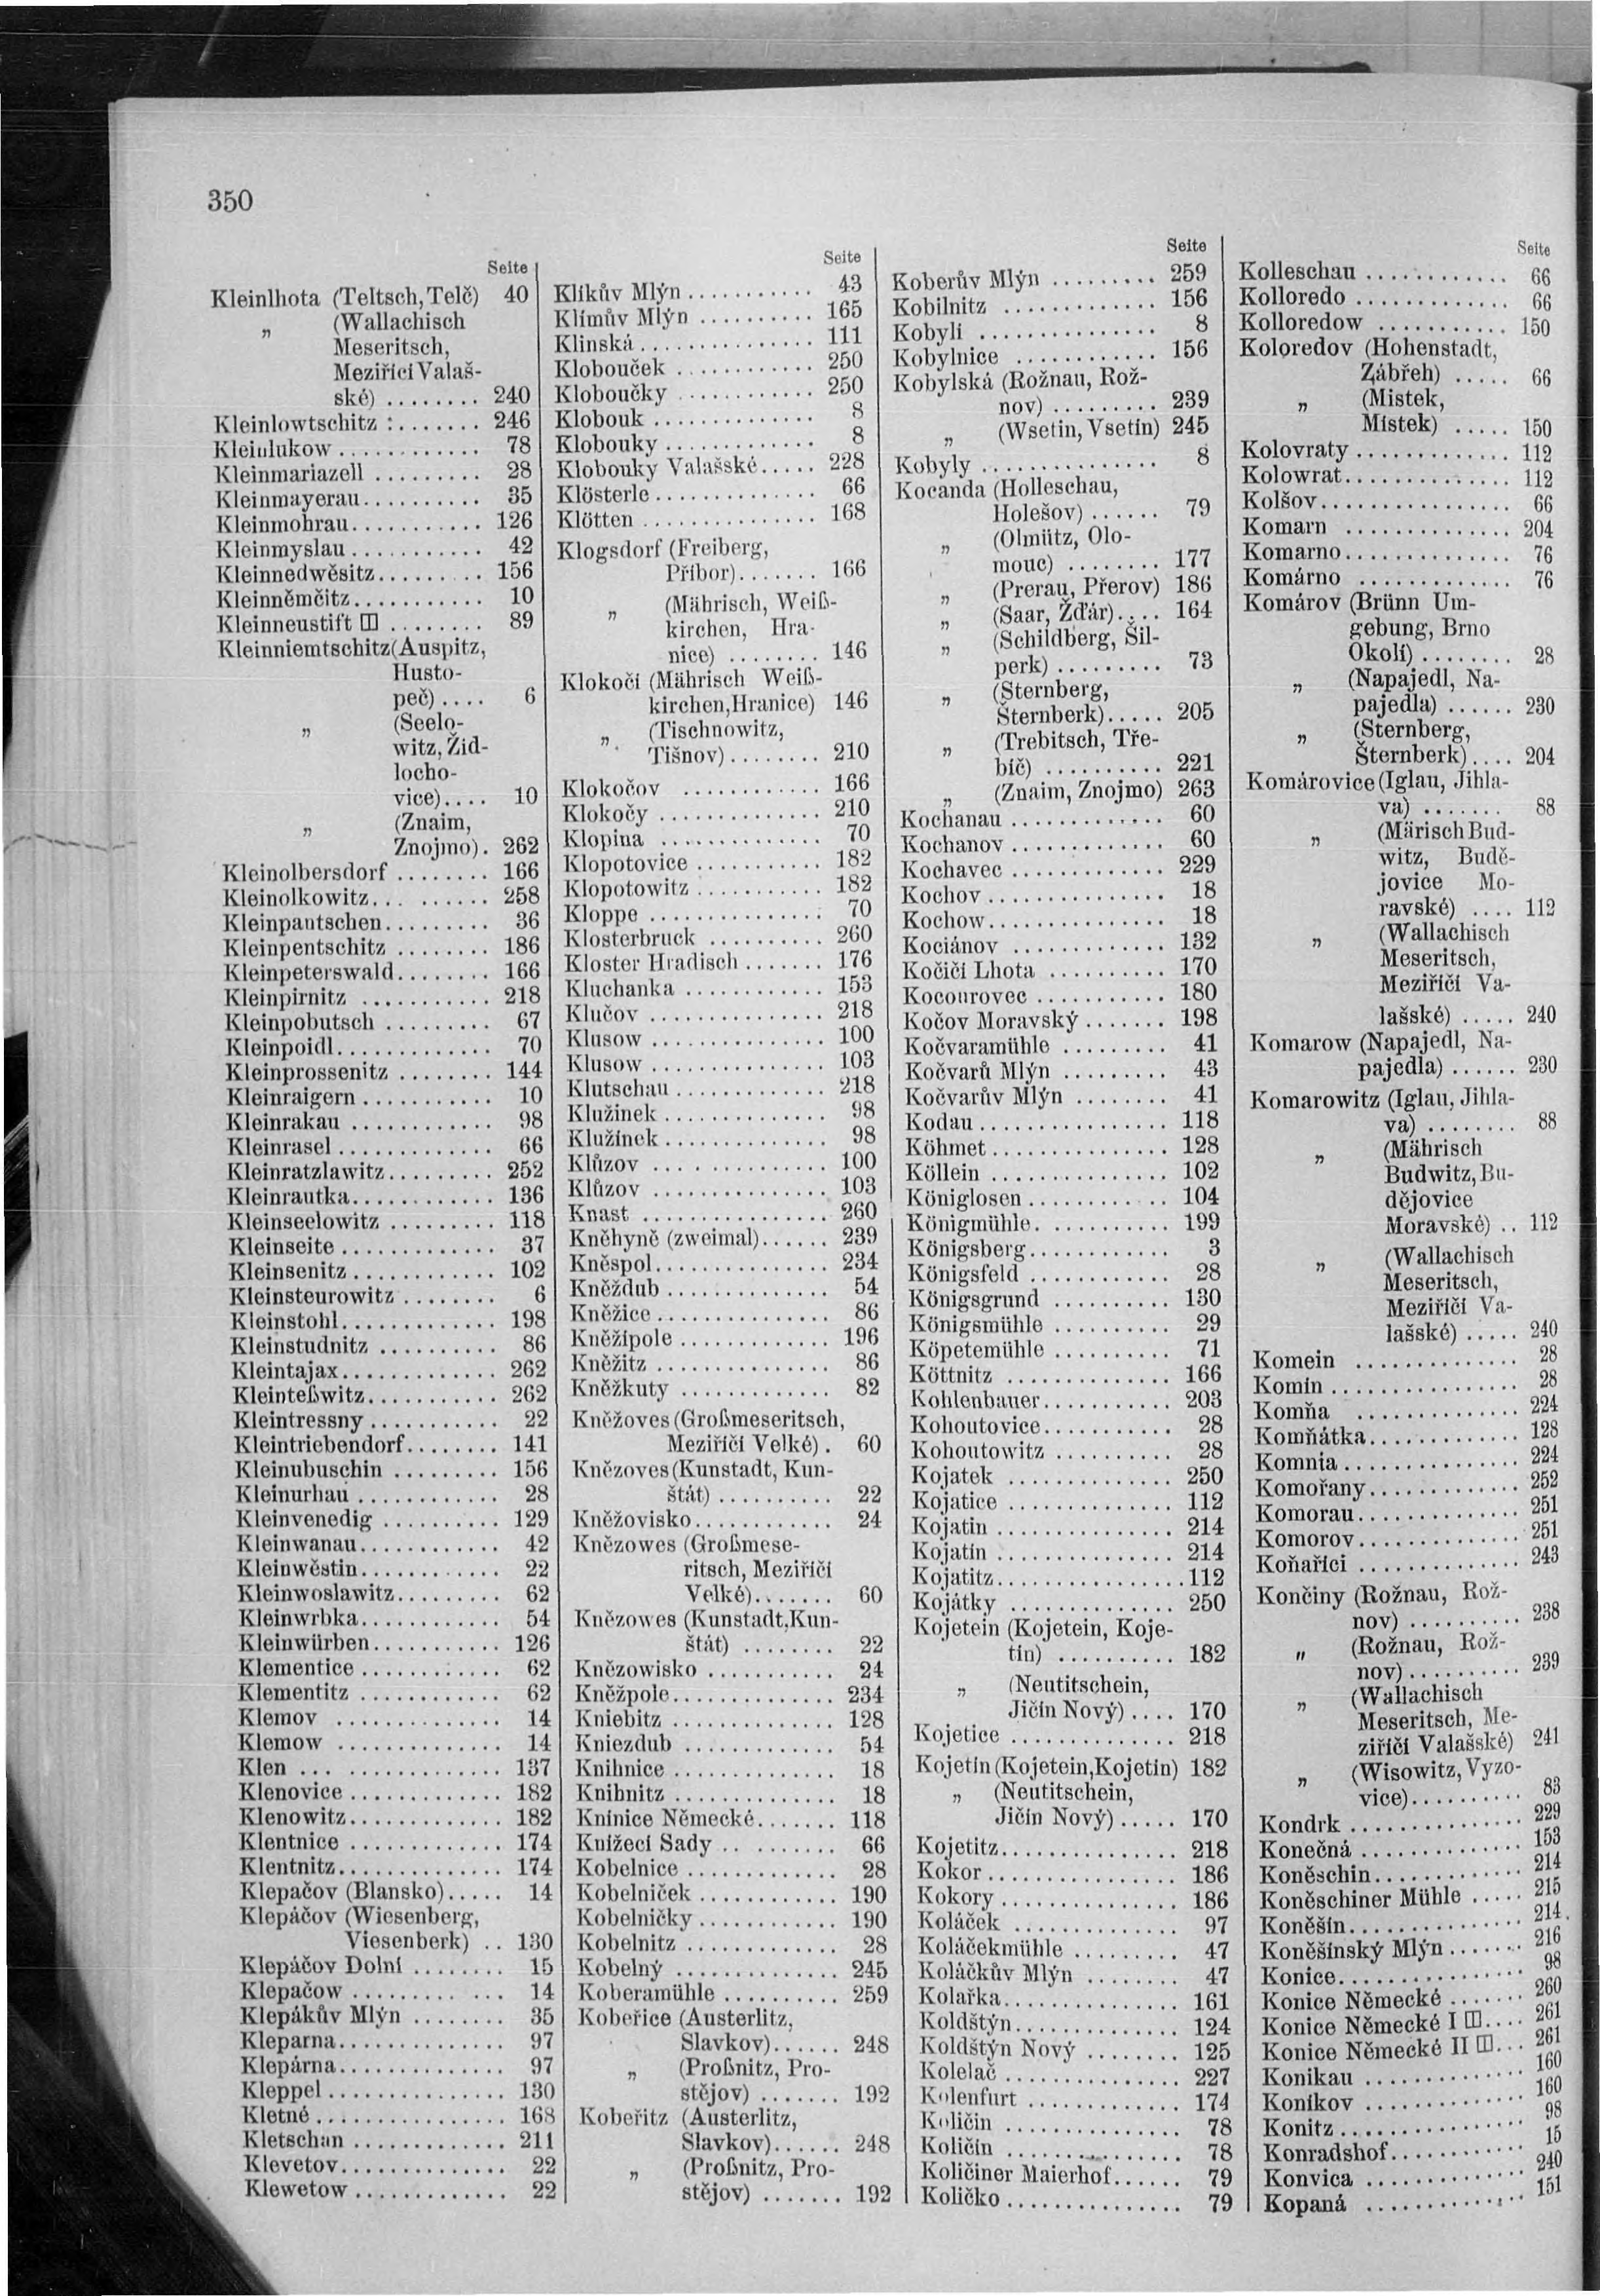 350
Seite
Kleinlhota (Teltsch, Telč) 40
„ (Wallachisch
Meseritsch,
Meziřící Valaš-
ské) ........ 240
Kleinlowtschitz ........ 246
Kleinlukow ............ 78
Kleinmariazell ......... 28
Kleinmayerau .......... 35
Kleinmohrau ........... 126
Kleinmyslau ........... 42
Kleinnedwěsitz ......... 156
Kleinněmčitz ........... 10
Kleinneustift ⊞ ........ 89
Kleinniemtschitz (Auspitz,
Husto-
peč) .... 6
„ (Seelo-
witz, Žid-
locho-
vice) .... 10
„ (Znaim,
Znojmo) . 262
Kleinolbersdorf ........ 166
Kleinolkowitz ......... 258
Kleinpantschen ......... 36
Kleinpentschitz ........ 186
Kleinpeterswald ........ 166
Kleinpirnitz ........... 218
Kleinpobutsch ......... 67
Kleinpoidl ............. 70
Kleinprossenitz ........ 144
Kleinraigern ........... 10
Kleinrakau ............ 98
Kleinrasel ............. 66
Kleinratzlawitz ......... 252
Kleinrautka ............ 136
Kleinseelowitz ......... 118
Kleinseite ............. 37
Kleinsenitz ............ 102
Kleinsteurowitz ........ 6
Kleinstohl ............. 198
Kleinstudnitz .......... 86
Kleintajax ............. 262
Kleinteßwitz ........... 262
Kleintressny ........... 22
Kleintriebendorf ........ 141
Kleinubuschin ......... 156
Kleinurhau ............ 28
Kleinvenedig .......... 129
Kleinwanau ............ 42
Kleinwěstin ............ 22
Kleinwoslawitz ......... 62
Kleinwrbka ............ 54
Kleinwürben ........... 126
Klementice ............ 62
Klementitz ............ 62
Klemov .............. 14
Klemow .............. 14
Klen ................ 137
Klenovice ............. 182
Klenowitz ............. 182
Klentnice ............. 174
Klentnitz .............. 174
Klepačov (Blansko) ..... 14
Klepáčov (Wiesenberg,
Viesenberk) .. 130
Klepáčov Dolní ........ 15
Klepačow ............. 14
Klepákův Mlýn ........ 35
Kleparna .............. 97
Klepárna .............. 97
Kleppel ............... 130
Kletné ................ 168
Kletschan ............. 211
Klevetov .............. 22
Klewetow ............. 22
Seite
Klíkův Mlýn ........... 43
Klímův Mlýn .......... 165
Klinská ............... 111
Klobouček ............ 250
Kloboučky ............ 250
Klobouk .............. 8
Klobouky ............. 8
Klobouky Valašské ..... 228
Klösterle .............. 66
Klötten ............... 168
Klogsdorf (Freiberg,
Příbor) ....... 166
„ (Mährisch, Weiß-
kirchen, Hra-
nice) ........ 146
Klokočí (Mährisch Weiß-
kirchen, Hranice) 146
„ (Tischnowitz,
Tišnov) ........ 210
Klokočov ............ 166
Klokočy .............. 210
Klopina .............. 70
Klopotovice ........... 182
Klopotowitz ........... 182
Kloppe ............... 70
Klosterbruck .......... 260
Kloster Hradisch ....... 176
Kluchanka ............ 153
Klučov ............... 218
Klusow ............... 100
Klusow ............... 103
Klutschau ............. 218
Klužinek .............. 98
Klužínek .............. 98
Klůzov ............... 100
Klůzov ............... 103
Knast ................ 260
Kněhyně (zweimal) ...... 239
Kněspol ............... 234
Kněždub .............. 54
Kněžice ............... 86
Kněžípole ............. 196
Kněžitz ............... 86
Kněžkuty ............. 82
Kněžoves (Großmeseritsch,
Meziříčí Velké) . 60
Knězoves (Kunstadt, Kun-
štát) .......... 22
Kněžovisko ............ 24
Knězowes (Großmese-
ritsch, Meziříčí
Velké) ........ 60
Knězowes (Kunstadt, Kun-
štát) ........ 22
Knězowisko ........... 24
Kněžpole .............. 234
Kniebitz .............. 128
Kniezdub ............. 54
Knihnice .............. 18
Knihnitz .............. 18
Knínice Německé ....... 118
Knížecí Sady .......... 66
Kobelnice ............. 28
Kobelníček ............ 190
Kobelničky ............ 190
Kobelnitz ............. 28
Kobelný .............. 245
Koberamühle .......... 259
Kobeřice (Austerlitz,
Slavkov) ...... 248
„ (Proßnitz, Pro-
stějov) ....... 192
Kobeřitz (Austerlitz,
Slavkov) ...... 248
„ (Proßnitz, Pro-
stějov) ....... 192
Seite
Koberův Mlýn ......... 259
Kobilnitz ............. 156
Kobylí ............... 8
Kobylnice ............ 156
Kobylská (Rožnau, Rož-
nov) ......... 239
„ (Wsetin, Vsetín) 245
Kobyly ............... 8
Kocanda (Holleschau,
Holešov) ...... 79
„ (Olmütz, Olo-
mouc) ........ 177
„ (Prerau, Přerov) 186
„ (Saar, Žďár) .... 164
„ (Schildberg, Šil-
perk) ......... 73
„ (Sternberg,
Šternberk) ..... 205
„ (Trebitsch, Tře-
bíč) .......... 221
„ (Znaim, Znojmo) 263
Kochanau ............ 60
Kochanov ............ 60
Kochavec ............ 229
Kochov .............. 18
Kochow .............. 18
Kociánov ............ 132
Kočičí Lhota .......... 170
Kocourovec ........... 180
Kočov Moravský ....... 198
Kočvaramühle ......... 41
Kočvarů Mlýn ......... 43
Kočvarův Mlýn ........ 41
Kodau ............... 118
Köhmet .............. 128
Köllein ............... 102
Königlosen ............ 104
Königmühle ........... 199
Königsberg ............ 3
Königsfeld ............ 28
Königsgrund .......... 130
Königsmühle .......... 29
Köpetemühle .......... 71
Köttnitz .............. 166
Kohlenbauer ........... 203
Kohoutovice ........... 28
Kohoutowitz .......... 28
Kojatek .............. 250
Kojatice .............. 112
Kojatin ............... 214
Kojatín ............... 214
Kojatitz ................ 112
Kojátky .............. 250
Kojetein (Kojetein, Koje-
tín) .......... 182
„ (Neutitschein,
Jičín Nový) .... 170
Kojetice .............. 218
Kojetín (Kojetein, Kojetin) 182
„ (Neutitschein,
Jičín Nový) ..... 170
Kojetitz ............... 218
Kokor ................ 186
Kokory ............... 186
Koláček .............. 97
Koláčekmühle ......... 47
Koláčkův Mlýn ........ 47
Kolařka ............... 161
Koldštýn .............. 124
Koldštýn Nový ........ 125
Kolelač ............... 227
Kolenfurt ............. 174
Količin ............... 78
Količín ............... 78
Količiner Maierhof ...... 79
Količko ............... 79
Seite
Kolleschau ............ 66
Kolloredo ............. 66
Kolloredow ........... 150
Koloredov (Hohenstadt,
Zábřeh) ..... 66
„ (Mistek,
Místek) ..... 150
Kolovraty ............. 112
Kolowrat .............. 112
Kolšov ................ 66
Komarn .............. 204
Komarno .............. 76
Komárno ............. 76
Komárov (Brünn Um-
gebung, Brno
Okolí) ........ 28
„ (Napajedl, Na-
pajedla) ...... 230
„ (Sternberg,
Šternberk) .... 204
Komárovice (Iglau, Jihla-
va) ....... 88
„ (Märisch Bud-
witz, Budě-
jovice Mo-
ravské) .... 112
„ (Wallachisch
Meseritsch,
Meziříčí Va-
lašské) ..... 240
Komarow (Napajedl, Na-
pajedla) ...... 230
Komarowitz (Iglau, Jihla-
va) ........ 88
„ (Mährisch
Budwitz, Bu-
dějovice
Moravské) .. 112
„ (Wallachisch
Meseritsch,
Meziříčí Va-
lašské) ..... 240
Komein .............. 28
Komín ................ 28
Komňa .............. 224
Komňátka ............. 128
Komnia ............... 224
Komořany ............. 252
Komorau .............. 251
Komorov .............. 251
Koňařici .............. 243
Končiny (Rožnau, Rož-
nov) .......... 238
„ (Rožnau, Rož-
nov) .......... 239
„ (Wallachisch
Meseritsch, Me-
ziříčí Valašské) 241
„ (Wisowitz, Vyzo-
vice) .......... 83
Kondrk ............... 229
Konečná .............. 153
Koněschin ............. 214
Koněschiner Mühle ..... 215
Koněšín ............... 214
Koněšínský Mlýn ....... 216
Konice ................ 98
Konice Německé ....... 260
Konice Německé I ⊞ .... 261
Konice Německé II ⊞ ... 261
Konikau .............. 160
Koníkov .............. 160
Konitz ................ 98
Konradshof ............ 15
Konvica .............. 240
Kopaná .............. 151